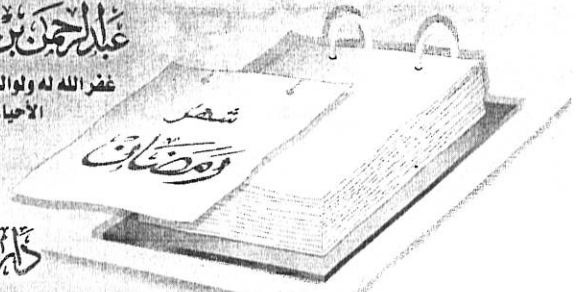 عبد الرحمن بن
غفر الله له ولوالد
الأحيا
شهر
رمضان
دار